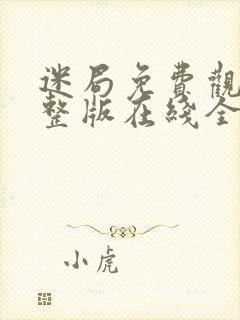 迷局免費觀
整版在綫全
小虎